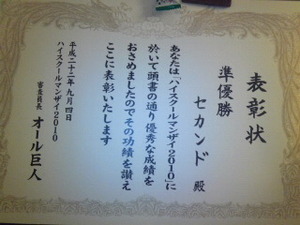 表彰状
準優勝
セカンド 殿
あなたは「ハイスクールマンザイ2010」に
於いて頭書の通り優秀な成績を
おさめましたのでその功績を讃え
ここに表彰いたします
平成二十二年九月四日
ハイスクールマンザイ2010
審査員長 オール巨人